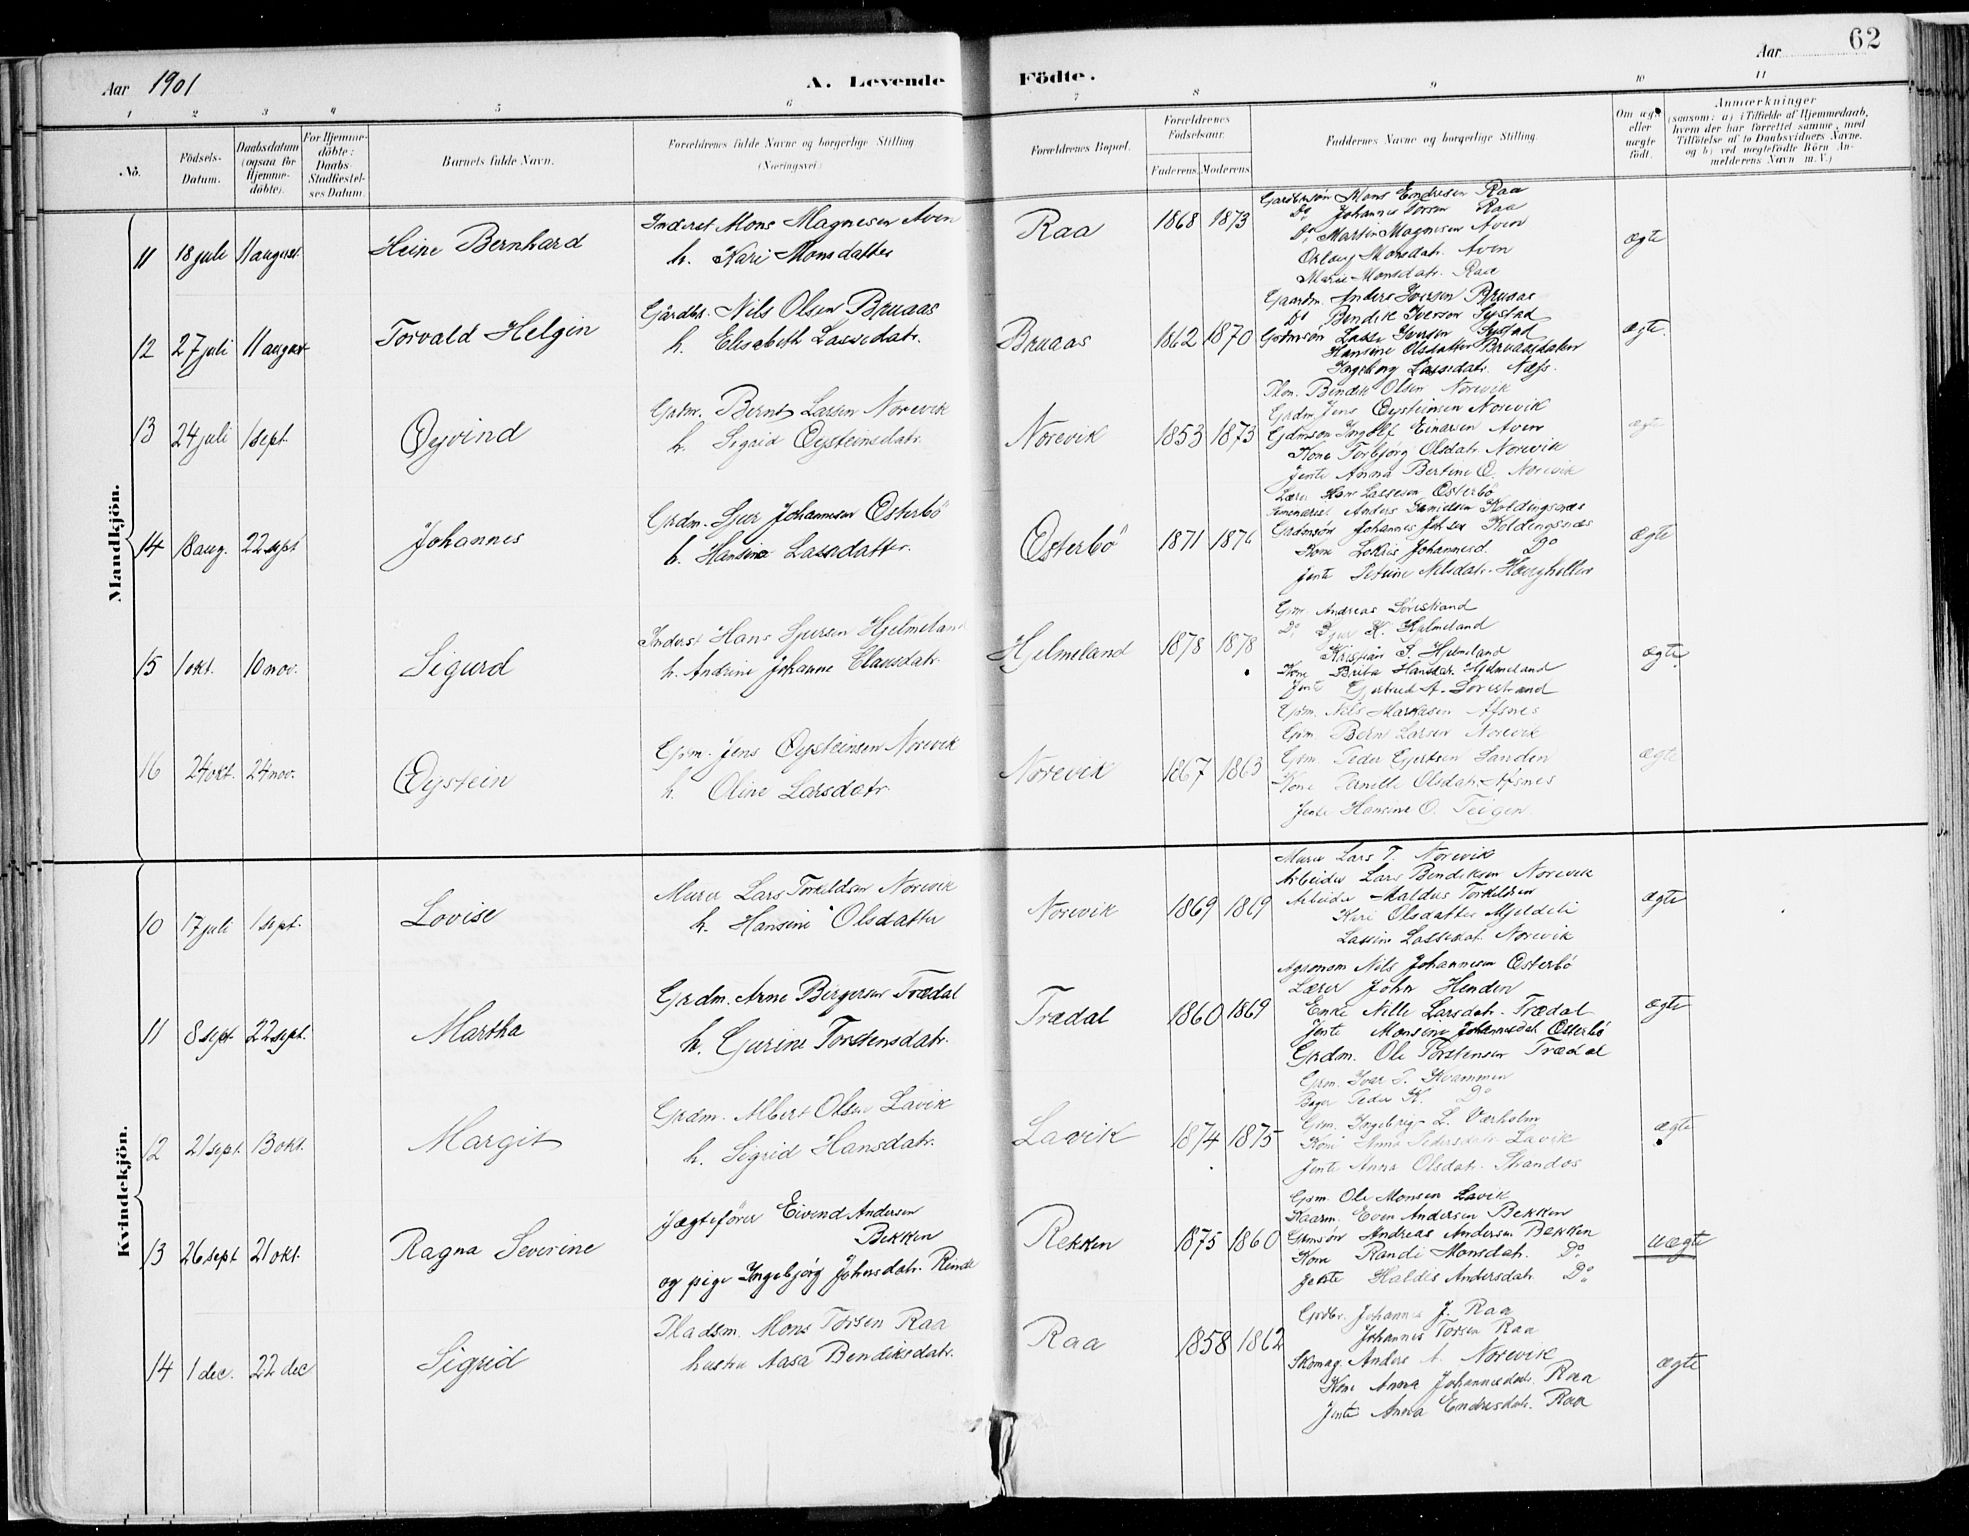 62
Aar 1901
A. Levende
Födte.
Aar
1 2 3 4 5 6 7 8 9 10 11
No.
Födsels-Datum.
Daabsdatum (ogsaa for Hjemme-döbte).
For Hjemme-döbte: Daabs-Stadfæstelses Datum.
Barnets fulde Navn.
Forældrenes fulde Navne og borgerlige Stilling (Næringsvei.)
Forældrenes Bopæl.
Forældrenes Födselsaar.
Faderens. Moderens.
Faddernes Navne og borgerlige Stilling.
Om ægte eller uægte født.
Anmærkninger (saasom: a) i Tilfælde af Hjemmedaab, hvem der har forrettet samme, med Tilföielse af to Daabsvidners Navne, og b) ved uægtefödte Börn Anmelderens Navn m. V.)
Mandkjön.
11 18 juli 11 august Heine Bernhard
Inderst Mons Magnesen Aven
h. Kari Monsdatter
Raa 1868 1873
Gaardmsøn Mons Endresen Raa
Do Johannes Torsen Raa
Do Martin Magnesen Aven
Monsdatr. Aven
Marie Monsdatr. Raa
ægte
12 27 juli 11 august Torvald Helgin
Gårdbr. Nils Olsen Bruaas
h. Elisabeth Lassedatr.
Bruaas 1862 1870
Gaardm. Anders Iversen Bruaas
Do Bendik Iverson Systad
Grdmsøn Lasse Iversen Systad
Hansine Olsdatter Bruaasdalen
Ingeborg Lassedatr. Næss.
ægte.
13 24 juli 1 sept. Øyvind
Grdm. Bernt Larsen Norevik
h. Sigrid Oysteinsdatr.
Norevik 1853 1873
Plm. Bendik Olsen Norevik
Grdm Jens Oysteinsen Norevik
Gdmson Ingolf Einarsen Aven
Kone Torbjörg Olsdatr. Norevik
Jente Anna Bertine O. Norevik
ægte
14 18 aug. 22 sept Johannes
Grdm. Sjur Johannesen Østerbö
h. Hansine Lassedatter.
Østerbö 1871 1876
Lærer Hans Lassesen Østerbö
Seminarist Anders Danielsen Koldingsnæs
Grdmsøn Johannes Koldingsnæs
Kone Johannesd. Do
Jente Petrine Nilsdatr.
ægte
15 1 okt. 10 nov. Sigurd
Inderst Hans Sjursen Hjelmeland
h. Andrine Johanne Clausdatr.
Hjelmeland 1878 1878
Grm. Andreas Sörestrand
Do. Sjur K. Hjelmeland
Kristian S. Hjelmeland
Kone Brita Hansdtr. Hjelmeland
Jente Gjertrud A. Sörestrand
ægte.
16 24 okt. 24 nov. Øystein
Grm. Jens Oysteinsen Norevik
h. Oline Larsdatr.
Norevik 1867 1863
Grm. Nils Markusen Afsnes
Grm. Bernt Larsen Norevik
Grm. Peder Gjertsen Sanden
Kone Pernille Olsdatr. Afsnes
Jente Hansine O. Teigen.
ægte
Kvindekjön.
10 17 juli 1 sept. Lovise
Murer Lars Torkildsen Norevik
h. Hansine Olsdatter
Norevik 1869 1869
Murer Lars T. Norevik
Arbeider Lars Bendiksen Norevik
Arbeider Maldus Torkildsen
Kari Olsdatter Mjeldeli
Lassine Lassedat. Norevik
ægte
11 8 sept 22 sept. Martha
Grdm. Arne Birgersen Trædal
h. Gurine Torstensdatr.
Trædal 1860 1869
Agronom Nils Johannesen Østerbö
Lærer John Henden
Enke Nille Larsdatr. Trædal
Jente Monsine Johannesdat Østerbö
Grdm. Ole Torstensen Trædal
ægte
12 21 sept. 13 okt. Margit
Grdm. Albert Olsen Lavik
h. Sigrid Hansdatr.
Lavik 1874 1875
Grm. Ivar P. Kvammen
Bager Peder K. Do
Grm. Ingebrigt L. Værholm
Kone Anna Pedersdatr. Lavik
Jente Anna Olsdatr. Strandos
ægte
13 26 sept 21 okt. Ragna Severine
Jægtefører Eivend Andersen Bekken
og pige Ingebjörg Johansdatr. Rende
Rekken 1875 1860
Grm. Ole Monsen Lavik
Kaarm. Even Andersen Bekken
Grmsøn Andreas Andersen Bekken
Kone Randi Monsdatr. Do.
Jente Haldis Andersdatr. Do.
uægte
14 1 dec. 22 dec Sigrid
Pladsm. Mons Torsen Raa
hustru Aasa Bendiksdatr.
Raa 1858 1862
Grdbr. Johannes J. Raa
Johannes Torsen Raa
Skomag. Anders A. Norevik
Kone Anna Johannesdatr. Raa
Jente Anna Endresdatr. Raa
ægte